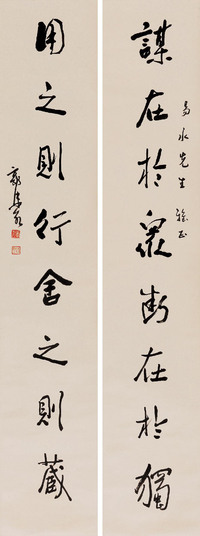 謀在於衆斷在於獨
易水先生雅正
用之則行舍之則藏